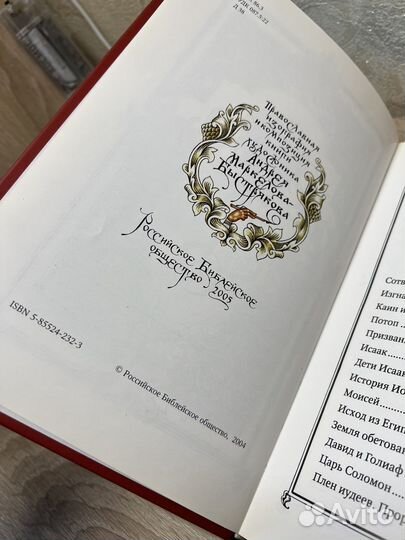 86.3
УДК 087.5:22
Д 38
Православная
изография
и композиция
книги
художника
Андрея
Маркелова-
Быстрякова
Российское Библейское
общество, 2005
ISBN 5-85524-232-3
© Российское Библейское общество, 2004
Сотв
Изгна
Каин и
Потоп
Призван
Исаак
Дети Исаак
История Ио
Моисей
Исход из Егип
Земля обетован
Давид и Голиаф
Царь Соломон
Плен иудеев. Прор
Avito